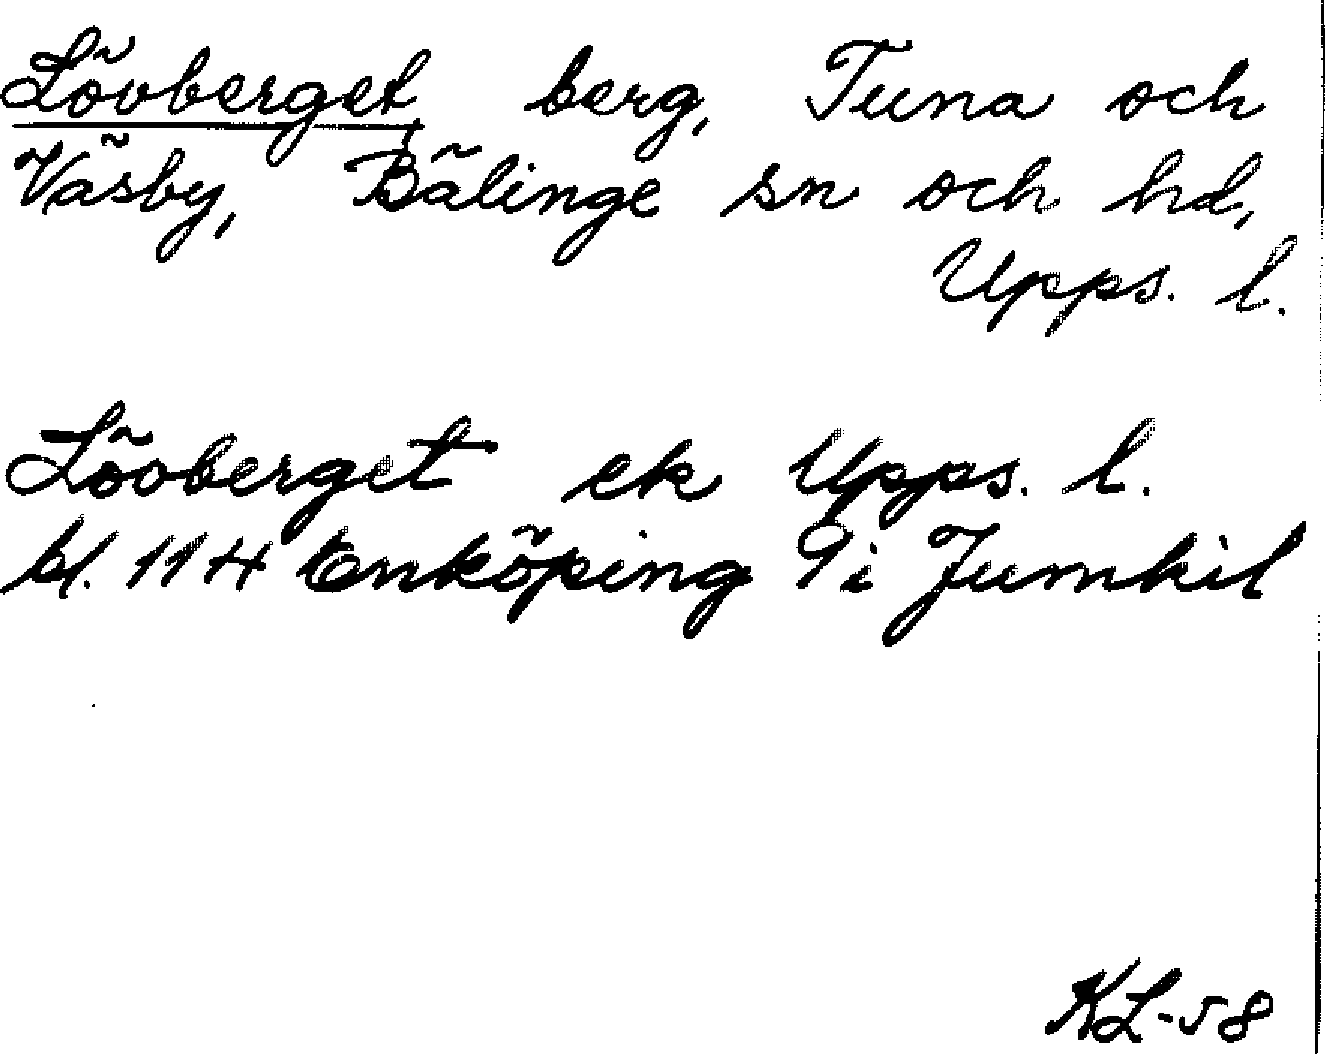 Lövberget, berg, Tuna och
Väsby, Bälinge sn och hd,
Upps. l.
Lövberget ek Upps. l.
bl. 114 Enköping 9 i Jumkil
KL-58